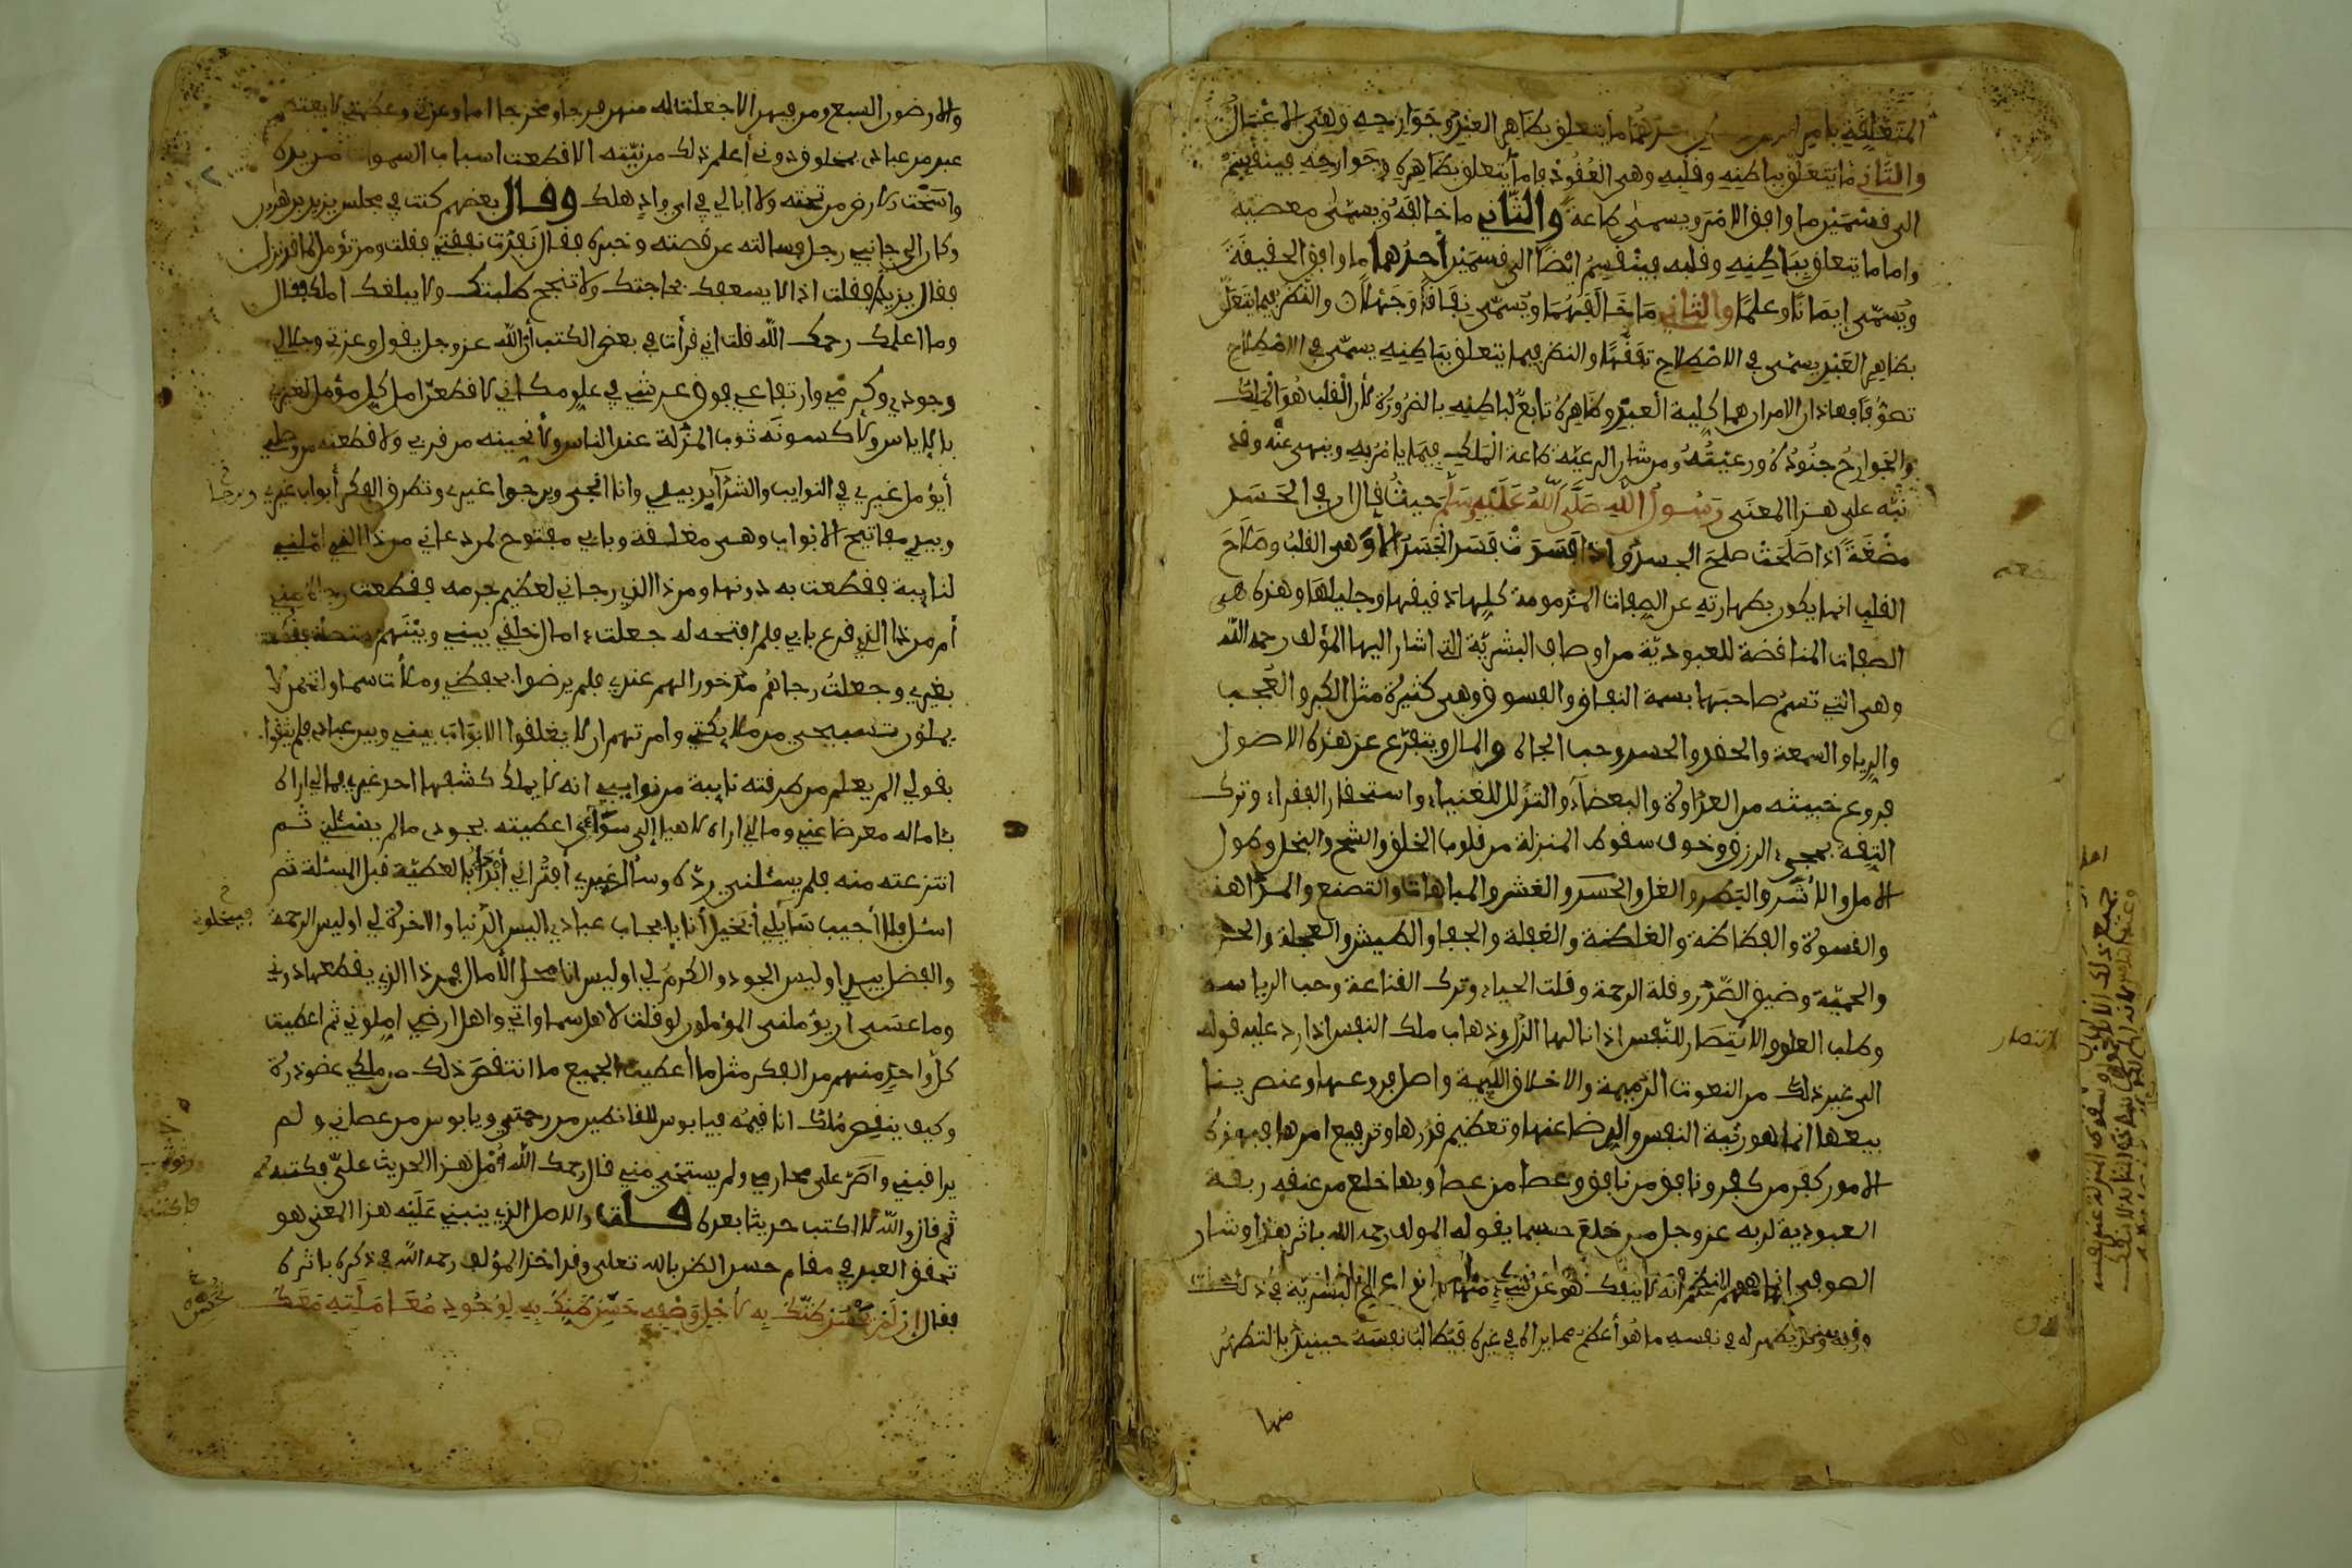 المتعلقة بأمر أحدهما ما يتعلق بظاهر العبد وجوارحه وهي الاعمال
والثاني ما يتعلق بباطنه وقلبه وهي العقود فاما ما يتعلق بظاهره وجوارحه فينقسم
الى قسمين ما وافق الامر ويسمى طاعة والثاني ما خالفه ويسمى معصية
واما ما يتعلق بباطنه وقلبه فينقسم ايضا الى قسمين أحدهما ما وافق الحقيقة
ويسمى ايمانا وعلما والثاني ما خالفهما ويسمى نفاقا وجهلا والنظر فيما يتعلق
بظاهر العبد يسمى في الاصطلاح تفقها والنظر فيما يتعلق بباطنه يسمى في الاصطلاح
تصوفا فهاذان الامران هما كلية العبد وظاهره تابع لباطنه بالضرورة لأن القلب هو الملك
والجوارح جنوده ورعيته ومن شان الرعية طاعة الملك فيما يأمر به وينهى عنه وقد
نبه على هذا المعنى رسول الله صلى الله عليه وسلم حيث قال ان في الجسد
مضغة اذا صلحت صلح الجسد واذا فسدت فسد الجسد الا وهي القلب وصلاح
القلب انما يكون بطهارته عن الصفات المذمومة كلها دقيقها وجليلها وهذه هي
الصفات المناقضة للعبودية من اوصاف البشرية التي اشار اليها المؤلف رحمه الله
وهي التي تسم صاحبها بسمة النفاق والفسوق وهي كثيرة مثل الكبر والعجب
والرياء والسمعة والحقد والحسد وحب الجاه والمال ويتفرع عن هذه الاصول
فروع خبيثه من العداوة والبغضاء والتذلل للاغنياء واستحقار الفقراء وترك
الثقة بمجيء الرزق وخوف سقوط المنزلة من قلوب الخلق والشح والبخل وطول
الامل والأشر والبطر والغل والحسد والغش والمباهات والتصنع والمداهنة
والقسوة والفظاظة والغلظة والغفلة والجفا والطيش والعجلة والحدة
والحمية وضيق الصدر وقلة الرحمة وقلت الحياء وترك القناعة وحب الرياسة
وطلب العلو والانتصار للنفس اذا نالها الذل وذهاب ملك النفس اذا رد عليه قوله
الى غير ذلك من النعوت الذميمة والاخلاق اللئيمة واصل فروعها وعنصر ينا
بيعها انما هو رؤية النفس والرضا عنها وتعظيم قدرها وترفيع امرها فبهذه
الامور كفر من كفر ونافق من نافق وعصا من عصا وبها خلع من عنقه ربقة
العبودية لربه عز وجل من خلع حسبما يقوله المؤلف رحمه الله باثر هذا وشان
وقد يظهر له في نفسه ما هو أعظم مما يراه في غيره فيطالب نفسه حينئذ بالتطهر
منها
مضغة
الانتصار
والارضون السبع ومن فيهن الا جعلت له منهن فرجا ومخرجا اما وعزتي وعظمتي لا يعتصم
عبد من عبادي بمخلوق دوني أعلم ذلك من نيته الا قطعت اسباب السموات من يده
واسخت الارض من تحته ولا ابالي في اي واد هلك وقال بعضهم كنت في مجلس يزيد بن هارون
وكان الى جانبي رجل فسالته عن قصته وخبره فقال نفدت نفقتي فقلت ومن تؤمل لما قد نزل
فقال يزيد فقلت اذا لا يسعفك بحاجتك ولا تنجح طلبتك ولا يبلغك املك فقال
وما اعلمك رحمك الله قلت اني قرأت في بعض الكتب أن الله عز وجل يقول وعزتي وجلالي
وجودي وكرمي وارتفاعي فوق عرشي في علو مكاني لاقطعن امل كل مؤمل لغيري
بالاياس ولأكسونه ثوب المذلة عند الناس ولأنحينه من قربي ولاقطعنه من وصلي
أيؤمل غيري في النوايب والشدآيد بيدي وانا الحي ويرجوا غيري وتطرق الفكر أبواب غيري
وبيدي مفاتيح الابواب وهي مغلقة وبابي مفتوح لمن دعاني من ذا الذي املني
لنايبة فقطعت به دونها ومن ذا الذي رجاني لعظيم جرمه فقطعت رجاه مني
أم من ذا الذي قرع بابي فلم افتحه له جعلت امال خلقي بيني وبينهم متصلة فقطعت
بغيري وجعلت رجاهم مدخورا لهم عندي فلم يرضوا بحفظي وملأت سماواتي ممن لا
يملون تسبيحي من ملايكتي وامرتهم ان لا يغلقوا الابواب بيني وبين عبادي فلم يثقوا
بقولي الم يعلم من طرقته نايبة من نوايبي انه لا يملك كشفها احد غيري فمالي اراه
بئاماله معرضا عني ومالي اراه لاهيا إلى سوآءي اعطيته بجودي مالم يسئلني ثم
انتزعته منه فلم يسئلني رده وسأل غيري أفتراني أبدأ بالعطية قبل المسئلة ثم
اسئل فلا أجيب سآيلي أبخيل أنا فيبخلني عبادي اليس الدنيا والاخرة لي اوليس الرحمة
والفضل بيدي اوليس الجود والكرم لي اوليس انا محل الآمال فمن ذا الذي يقطعها دوني
وما عسى ان يؤملني المؤملون لو قلت لاهل سماواتي واهل ارضي املوني ثم اعطيت
كل واحد منهم من الفكر مثل ما أعطيت الجميع ما انتقص ذلك من ملكي عضو ذرة
وكيف ينقص ملك انا قيمه فيا بوس للقانطين من رحمتي ويا بوس من عصاني ولم
يراقبني واصر على محارمي ولم يستحي مني قال رحمك الله أمل هذا الحديث علي فكتبه
ثم قال والله لا اكتب حديثا بعده قلت والاصل الذي ينبني عليه هذا المعنى هو
تحقق العبد في مقام حسن الظن بالله تعلى وقد اخذ المؤلف رحمه الله في ذكره باثره
فقال إن لم تحسن ظنك به لأجل وصفه حسن ظنك به لوجود معاملته معك